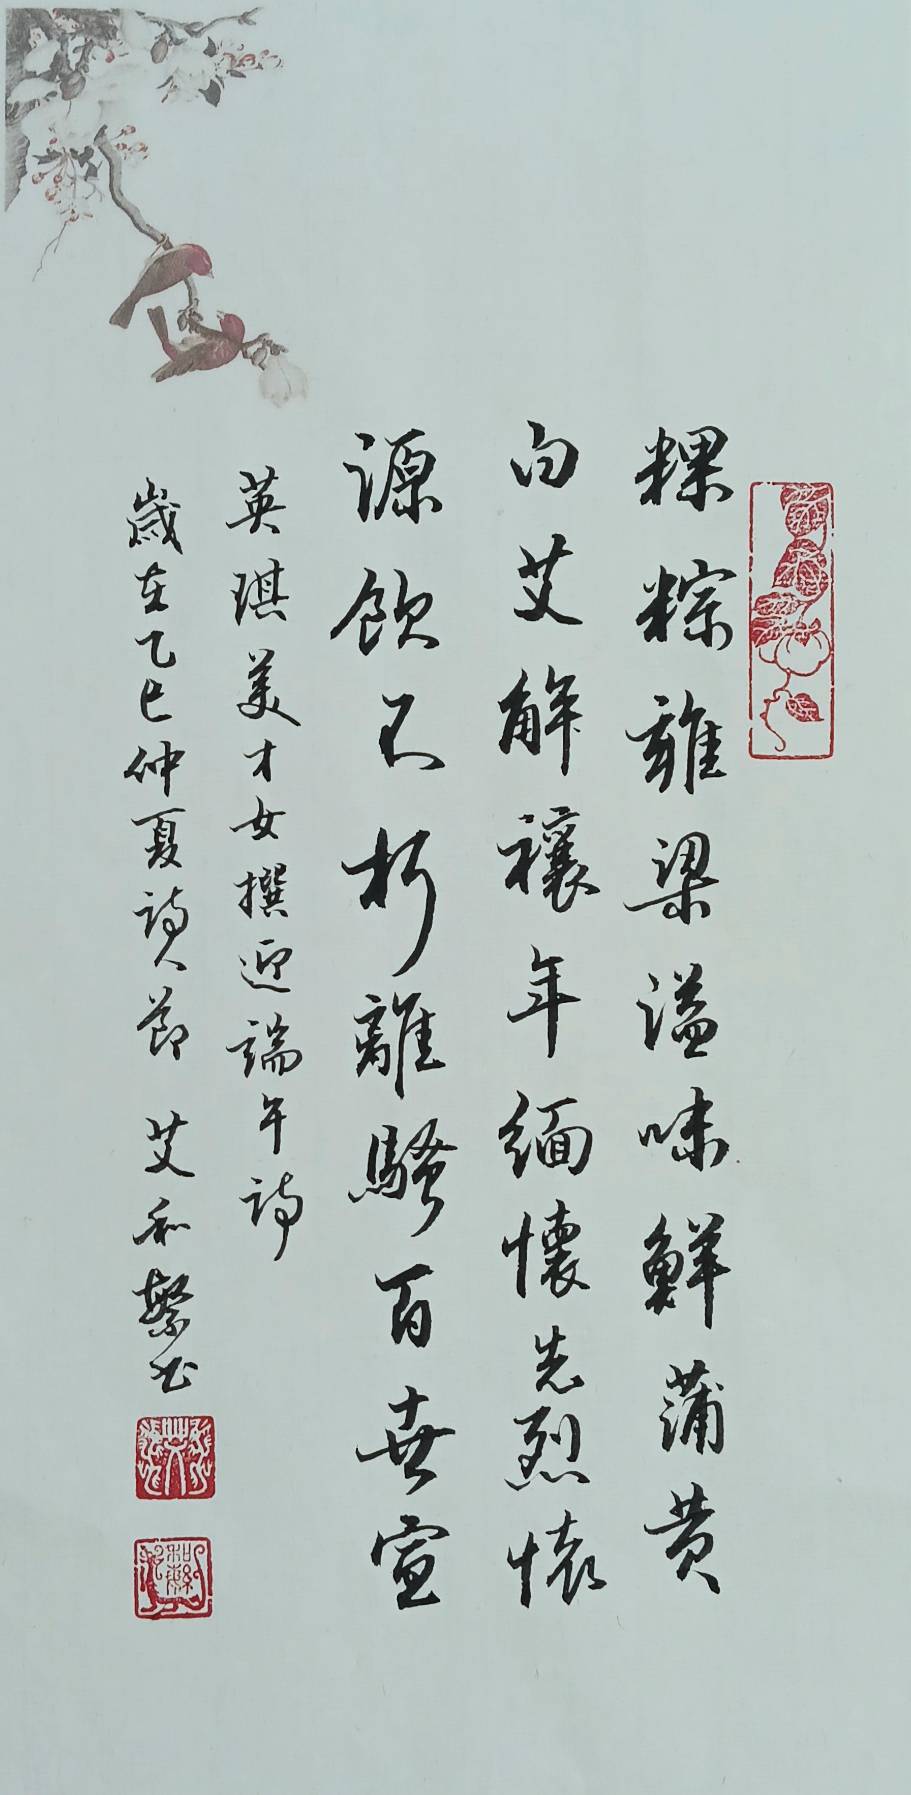 粿粽雜梁溢味鮮蒲黄
白艾解禳年緬懷先烈懷
源飲不朽離騷百宣
英琪美才女撰迎端午詩
歲在乙巳仲夏詩人節 艾和繁书